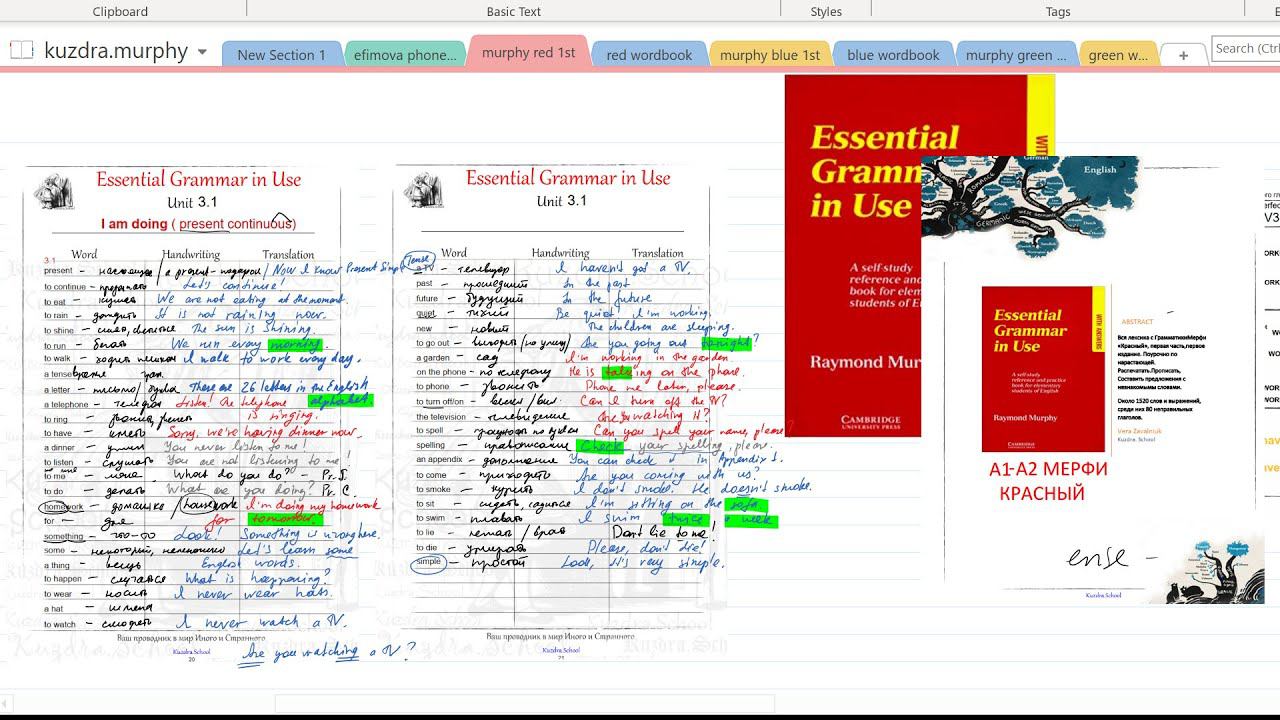 Clipboard
Basic Text
Styles
Tags
kuzdra.murphy
New Section 1
efimova phone...
murphy red 1st
red wordbook
murphy blue 1st
blue wordbook
murphy green ...
green w...
+
Search (Ctrl
Essential Grammar in Use
Unit 3.1
I am doing ( present continuous)
Word Handwriting Translation
3.1
present - настоящее a present - Now I know Present Simple Tense
to continue - Let's continue!
to eat - кушать We are not eating at the moment.
to rain - It is not raining now.
to shine - The sun is shining.
to run - бегать We run every morning.
to walk - ходить пешком I walk to work every day.
a tense
a letter - письмо/буква There are 26 letters in the English alphabet
a telephone - телефон Listen! The telephone
to ring - is ringing.
to have - иметь Sorry, we're having dinner now.
a dinner - ужин You never listen to me!
to listen - слушать You are not listening to me!
to me - мне What do you do? Pr. S.
to do - делать What are you doing? Pr. C.
homework - домашка /housework I'm doing my homework
for - для for tomorrow.
something - что-то Look! Something is wrong here.
some - некоторый, Let's learn some
a thing - вещь English words.
to happen - случаться What is happening?
to wear - носить I never wear hats.
a hat - шляпа
to watch - смотреть I never watch a TV.
Ваш проводник в мир Иного и Странного
Kuzdra.School
20
Are you watching a TV?
Essential Grammar in Use
Unit 3.1
Word Handwriting Translation
a TV - телевизор I haven't got a TV.
past - прошедший In the past
future - будущий In the future
quiet - тихий Be quiet! I'm working.
new - новый The children are sleeping.
to go out - выходить (на улицу) Are you going out tonight?
a garden - сад I'm working in the garden.
on the phone - по телефону He is talking on the phone.
to phone - звонить Phone me later, please.
to turn off/on - выкл/вкл Can I turn off the TV?
the television - телевидение Are you watching it?
to spell - Can you spell your name, please?
spelling - правописание Check your spelling, please.
an appendix - дополнение You can check it in Appendix 1.
to come - приходить Are you coming with us?
to smoke - курить I don't smoke. He doesn't smoke.
to sit - сидеть, садиться I'm sitting on the sofa.
to swim - плавать I swim twice a week
to lie - лежать /врать Don't lie to me!
to die - умирать Please, don't die!
simple - простой Look, it's very simple.
Ваш проводник в мир Иного и Странного
Kuzdra.School
21
Essential
Gramm
in Use
WITH
A self-study
reference and
book for elem
students of En
Raymond Mur
CAMBRIDGE
UNIVERSITY PRESS
German
English
Essential
Grammar
in Use
WITH ANSWERS
A self-study
reference and practice
book for elementary
students of English
Raymond Murphy
CAMBRIDGE
UNIVERSITY PRESS
ABSTRACT
Вся лексика с ГрамматикиМерфи
«Красный», первая часть,первое
издание. Поурочно по
нарастающей.
Распечатать.Прописать,
Составить предложения с
незнакомыми словами.
Около 1520 слов и выражений,
среди них 80 неправильных
глаголов.
Vera Zavalniuk
Kuzdra. School
A1-A2 МЕРФИ
КРАСНЫЙ
ense -
Kuzdra.School